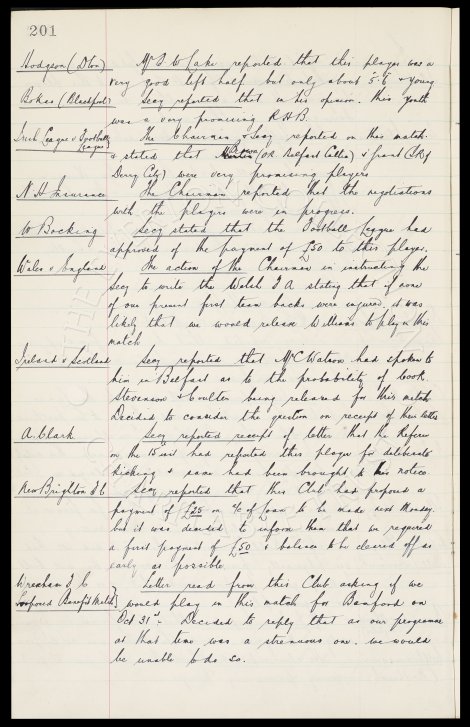 201
Hodgson (Dton) Mr J W Cake reported that this player was a
very good left half but only about 5'6 & young
Bokas (Blackpool) Secy reported that in his opinion this youth
was a very promising R.H.B.
Irish League v Football The Chairman & Secy reported on this match
League) & stated that Brown (OR Belfast Celtic) & Grant (
Derry City) were very promising players
N.H. Insurance The Chairman reported that the negotiations
with the players were in progress.
W Bocking Secy stated that the Football League had
approved of the payment of £50 to this player.
Wales v England The action of the Chairman in instructing the
Secy to write the Welsh F A stating that if none
of our present first team backs were injured, it was
likely that we would release Williams to play in this
match
Ireland v Scotland Secy reported that Mr C Watson had spoken to
him in Belfast as to the probability of Cook,
Stevenson & Coulter being released for this match
Decided to consider the question on receipt of their letter
A. Clark Secy reported receipt of letter that the Referee
on the 15 inst had reported this player for deliberate
kicking & same had been brought to his notice
New Brighton F C Secy reported that this Club had proposed a
payment of £25 on a/c of Loan to be made next Monday,
but it was decided to inform them that we required
a first payment of £50 & balance to be cleared off as
early as possible.
Wrexham F. C Letter read from this Club asking if we
(Proposed Benefit Match) would play in this match for Bamford on
Oct 31st. Decided to reply that as our programme
at that time was a strenuous one, we would
be unable to do so.